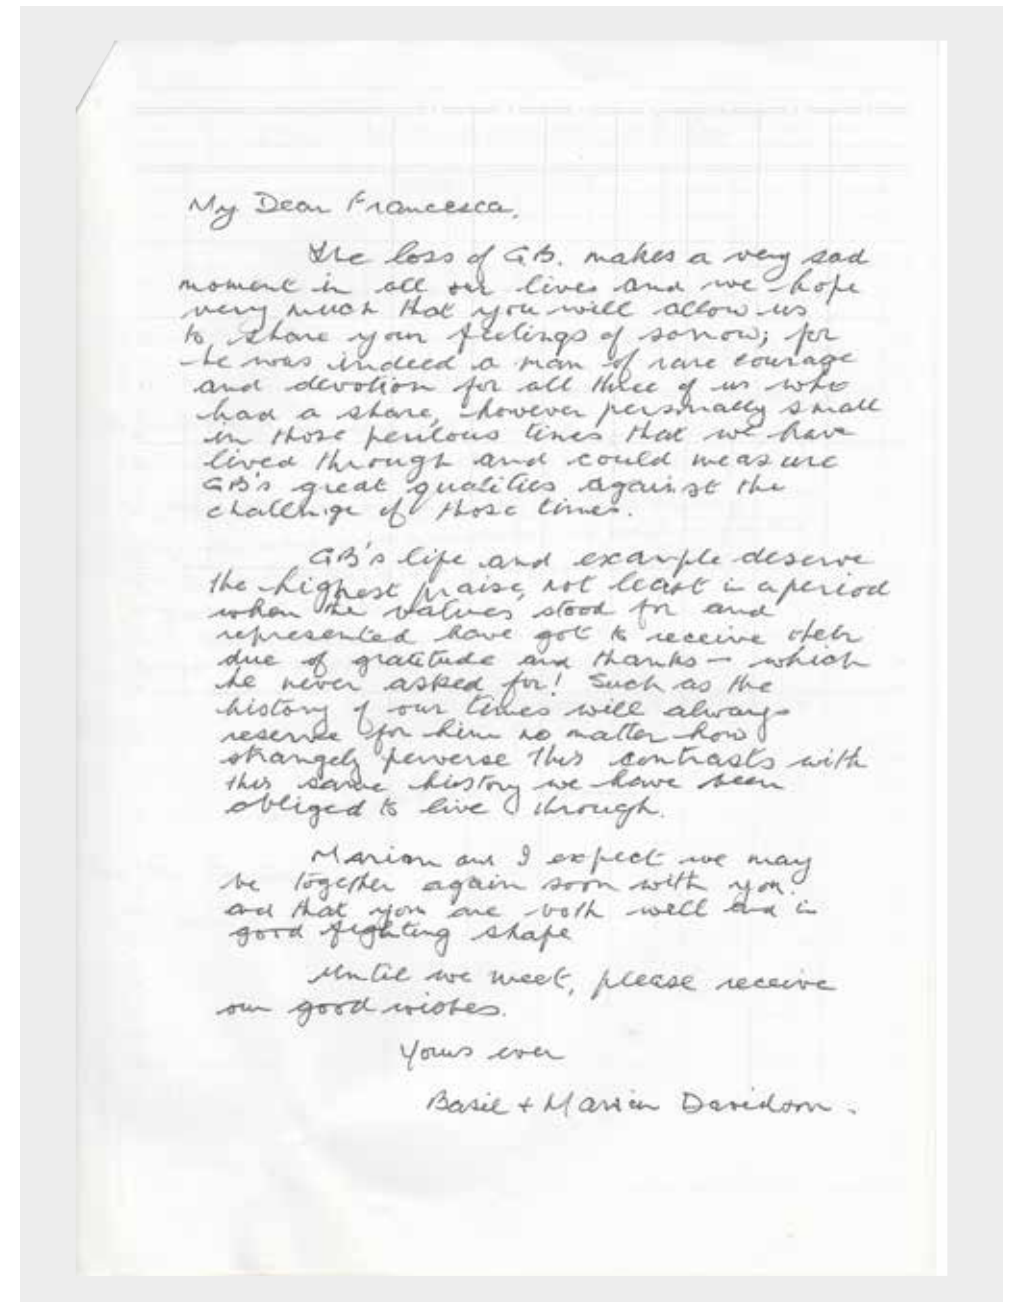 My Dear Francesca,
The loss of GB. makes a very sad
moment in all our lives and we hope
very much that you will allow us
to share your feelings of sorrow; for
he was indeed a man of rare courage
and devotion for all three of us who
had a share, however personally small
in those perilous times that we have
lived through and could measure
GB's great qualities against the
challenge of those times.
GB's life and example deserve
the highest praise, not least in a period
when the values stood for and
represented have got to receive their
due of gratitude and thanks – which
he never asked for! Such as the
history of our times will always
reserve for him no matter how
strangely perverse this contrasts with
this same history we have been
obliged to live through.
Marion and I expect we may
be together again soon with you.
and that you are both well and in
good fighting shape
Until we meet, please receive
our good wishes.
Yours ever
Basil + Marion Davidson.